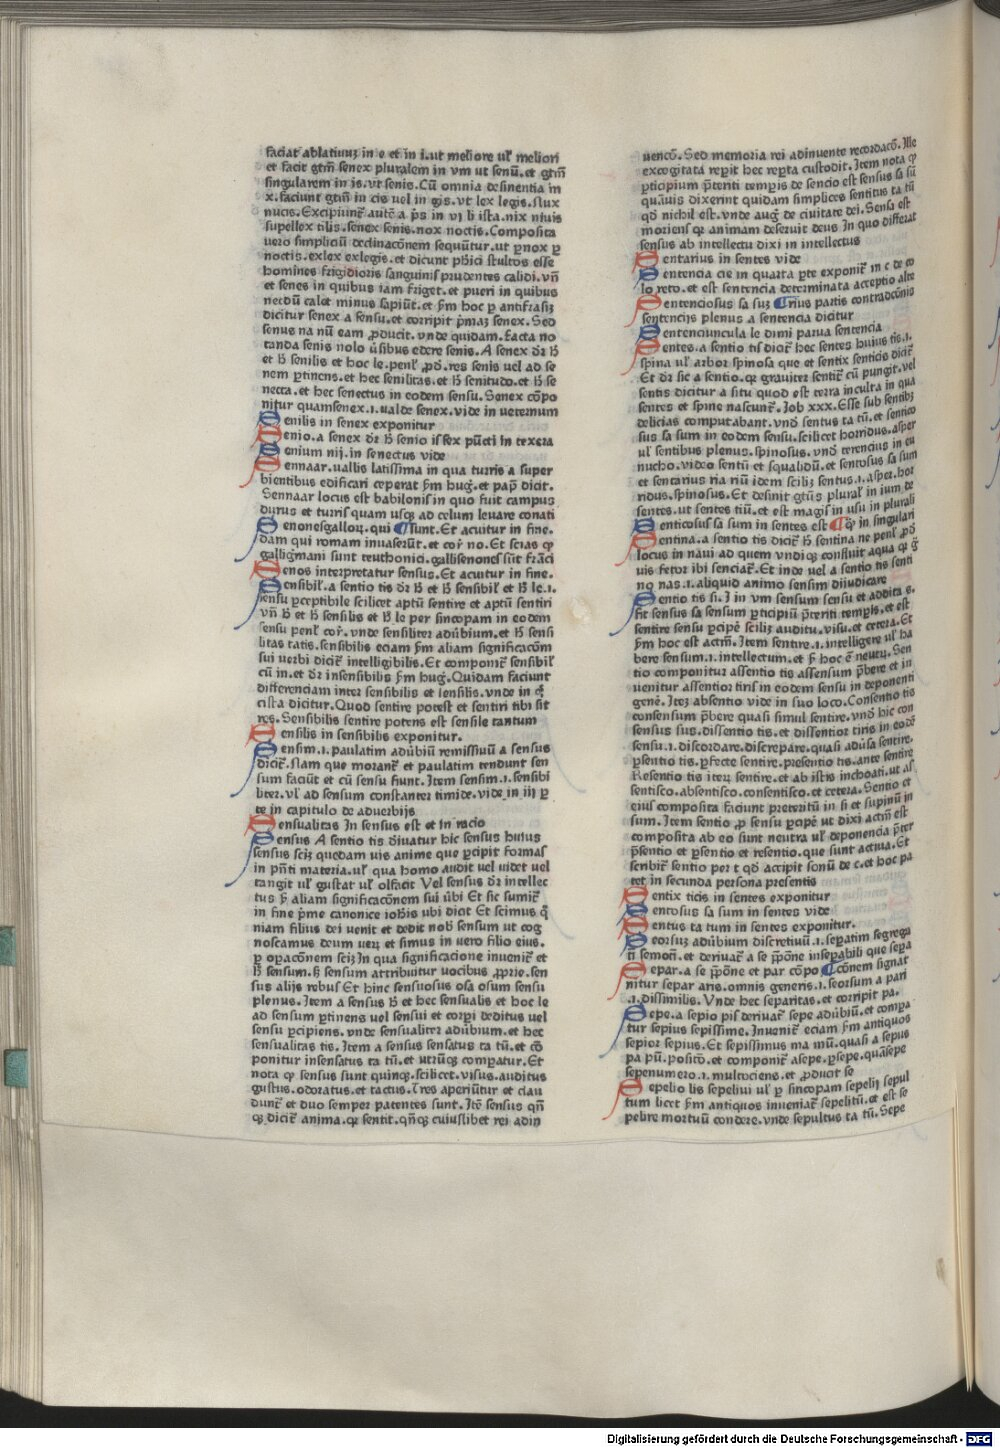 faciat ablatiuuꝫ in e et in i.ut meliore ul̄ meliori
et facit gtm̄ senex pluralem in vm ut senū.et gtm̄
singularem in is.vt senis.Cū omnia desinentia in
x.faciunt gtm̄ in cis uel in gis.vt lex legis.lux
nucis.Excipiunt᷑ autē a p̄s in vj li ista.nix niuis
supellex tilis.senex senis.nox noctis.Composita
uero simpliciū declinacōnem sequūtur.ut ꝑnox ꝑ
noctis.exlex exlegis.et dicunt ph̄ici stultos esse
homines frigidioris sanguinis prudentes calidi.vn̄
et senes in quibus iam friget.et pueri in quibus
necdū calet minus sapiūt.et ẜm hoc ꝑ antifrasiꝫ
dicitur senex a sensu.et corripit pͥmaꝫ senex.Sed
senus na nū eam ꝓducit.vnde quidam.facta no
tanda senis nolo ūsibus edere senis.A senex dr̄ h̄
et h̄ senilis et hoc le.penl̄ ꝓd̄.res senis uel ad se
nem ꝑtinens.et hec senilitas.et h̄ senitudo.et h̄ se
necta.et hec senectus in eodem sensu.Senex cōpo
nitur quamsenex.i.ualde senex.vide in ueternum
Senilis in senex exponitur
Senio.a senex dr̄ h̄ senio is sex pūcti in texera
Senium nij.in senectus vide
Sennaar.uallis latissima in qua turris a super
bientibus edificari ceperat ẜm hug̅.et pap̄ dicit.
Sennaar locus est babilonis in quo fuit campus
durus et turris quam usqꝫ ad celum leuare conati
Senonesgalloꝝ.qui ¶ sunt.Et acuitur in fine.
dam qui romam inuaserūt.et cor̄ no.Et scias ꝙ
galligmani sunt teuthonici.gallisenones sūt frāci
Senos interpretatur sensus.Et acuitur in fine.
Sensibil̄.a sentio tis dr̄ h̄ et h̄ sensibil̄ et h̄ le.i.
sensu ꝑceptibile scilicet aptū sentire et aptū sentiri
vn̄ h̄ et h̄ sensilis et h̄ le per sincopam in eodem
sensu penl̄ cor̄.vnde sensiliter adūbium.et h̄ sensi
litas tatis.sensibilis eciam ẜm aliam significacōm
sui uerbi dicit᷑ intelligibilis.Et componit᷑ sensibil̄
cū in.et dr̄ insensibilis ẜm hug̅.Quidam faciunt
differenciam inter sensibilis et sensilis.vnde in ḡ
cista dicitur.Quod sentire potest et sentiri tibi sit
res.Sensibilis sentire potens est sensile tantum
Sensilis in sensibilis exponitur.
Sensim.i.paulatim adūbiū remissiuū a sensus
dicit᷑.Nam que morant᷑ et paulatim tendunt sen
sum faciūt et cū sensu fiunt.Item sensim.i.sensibi
liter.vl̄ ad sensum constanter timide.vide in iij ꝑ
te in capitulo de aduerbijs
Sensualitas In sensus est et in racio
Sensus A sentio tis diuatur hic sensus huius
sensus sciꝫ quedam uis anime que ꝑcipit formas
in pn̄ti materia.ul̄ qua homo audit uel videt uel
tangit ul̄ gustat ul̄ olfacit Vel sensus dr̄ intellec
tus ꝑ aliam significacōnem sui ūbi Et sic sumit᷑
in fine pͥme canonice iohīs ubi dicit Et scimus qm̄
niam filius dei uenit et dedit nob̄ sensum ut cog
noscamus deum ueꝝ et simus in uero filio eius.
ꝑ oꝑacōnem sciꝫ In qua significacione inuenit᷑ et
h̄ sensum.ẜ sensum attribuitur uocibus ꝓprie.sen
sus alijs rebus Et hinc sensuosus osa osum sensu
plenus.Item a sensus h̄ et hec sensualis et hoc le
ad sensum ꝑtinens uel sensui et corꝑi deditus uel
sensu ꝑcipiens.vnde sensualiter adūbium.et hec
sensualitas tis.Item a sensus sensatus ta tū.et cō
ponitur insensatus ta tū.et utrūqꝫ comꝑatur.Et
nota ꝙ sensus sunt quinqꝫ.scilicet.visus.auditus
gustus.odoratus.et tactus.Tres aperiūtur et clau
dunt᷑ et duo semper patentes sunt.Itē sensus qn̄
qꝫ dicit᷑ anima.qꝛ sentit.qn̄qꝫ cuiuslibet rei adin
uencō.Sed memoria rei adinuente recordacō.Ille
excogitata reꝑit hec reꝑta custodit.Item nota ꝙ
ꝑticipium p̄teriti temꝑis de sencio est sensus sa sū
quāuis dixerint quidam simplices sentitus ta tū
qd̄ nichil est.vnde aug̅ de ciuitate dei.Sensa est
moriens qꝛ animam deseruit deus In quo differat
sensus ab intellectu dixi in intellectus
Sentarius in sentes vide
Sentencia cie in quarta ꝑte exponit᷑ in c de co
lo reto.et est sentencia determinata acceptio alte
Sentenciosus sa suꝫ ¶ rius partis contradcōnis
sentencijs plenus a sentencia dicitur
Sentenciuncula le dimi parua sentencia
Sentes.a sentio tis dicit᷑ hec sentes huius tis.i.
spina ul̄ arbor spinosa que et sentix senticis dicit᷑
Et dr̄ sic a sentio.qꝛ grauiter sentit᷑ cū pungit.vel
sentis dicitur a situ quod est terra inculta in qua
sentes et spine nascunt᷑.Job xxx.Esse sub sentibꝫ
delicias computabant.vnd̄ sentus ta tū.et sentico
sus sa sum in eodem sensu.scilicet horridus.asper
ul̄ sentibus plenus.spinosus.vnd̄ terencius in eu
nucho.video sentū et squalidū.et sentosus sa sum
et sentarius ria riū idem sciliꝫ sentus.i.asper.hor
ridus.spinosus.Et desinit gtūs plural̄ in ium de
sentes.ut sentes tiū.et est magis in usu in plurali
Senticosus sa sum in sentes est ¶ qꝫ in singulari
Sentina.a sentio tis dicit᷑ h̄ sentina ne penl̄ ꝓd̄
locus in naui ad quem vndiqꝫ confluit aqua ꝙ g̅
uis fetor ibi senciat᷑.Et inde vel a sentio tis senti
no nas.i.aliquid animo sensim dijudicare
Sentio tis si.I in vm sensum sensu et addita s.
fit sensus sa sensum ꝑticipiū p̄teriti temꝑis.et est
sentire sensu ꝑcipē sciliꝫ auditu.visu.et cetera.Et
ẜm hoc est actm̄.Item sentire.i.intelligere ul̄ ha
bere sensum.i.intellectum.et ẜ hoc ē neutꝝ.Sen
tio componitur assentio tis assensum p̄bere et in
uenitur assentior tiris in eodem sensu in deponenti
genē.Iteꝫ absentio vide in suo loco.Consentio tis
consensum p̄bere quasi simul sentire.vnd̄ hic con
sensus sus.dissentio tis.et dissentior tiris in eodē
sensu.i.discordare.discrepare.quasi adūsa sentire.
ꝑsentio tis.ꝑfecte sentire.presentio tis.ante sentire
Resentio tis iteꝝ sentire.et ab istis inchoati.ut as
sentisco.absentisco.consentisco.et cetera.Sentio et
eius composita faciunt preteritū in si et supinū in
sum.Item sentio ꝓ sensu ꝑcipē ut dixi actm̄ est
composita ab eo sunt neutra ul̄ deponencia p̄ter
p̄sentio et ꝑsentio et resentio.que sunt actiua.Et
scribit᷑ sentio per t qd̄ accipit sonū de c.et hoc pa
tet in secunda persona presentis
Sentix ticis in sentes exponitur
Sentosus sa sum in sentes vide
Sentus ta tum in sentes exponitur.
Seorsuꝫ adūbium discretiuū.i.seꝑatim segrega
tī semotī.et deriuat᷑ a se p̄pōne inseꝑabili que seꝑa
Separ.a se p̄pōne et par cōpo ¶ cōnem signat
nitur separ aris.omnis generis.i.seorsum a pari
.i.dissimilis.Vnde hec separitas.et corripit pa.
Sepe.a sepio pis deriuat᷑ sepe adūbiū.et compa
tur sepius sepissime.Inuenit᷑ eciam ẜm antiquos
sepior sepius.Et sepissimus ma mū.quasi a sepus
pa pū.positō.et componit᷑ asepe.ꝑsepe.quāsepe
sepenumero.i.multociens.et ꝓducit se
Sepelio lis sepeliui ul̄ ꝑ sincopam sepelij sepul
tum licet ẜm antiquos inueniat᷑ sepelitū.et est se
pelire mortuū condere.vnde sepultus ta tū.Sepe
Digitalisierung gefördert durch die Deutsche Forschungsgemeinschaft - DFG